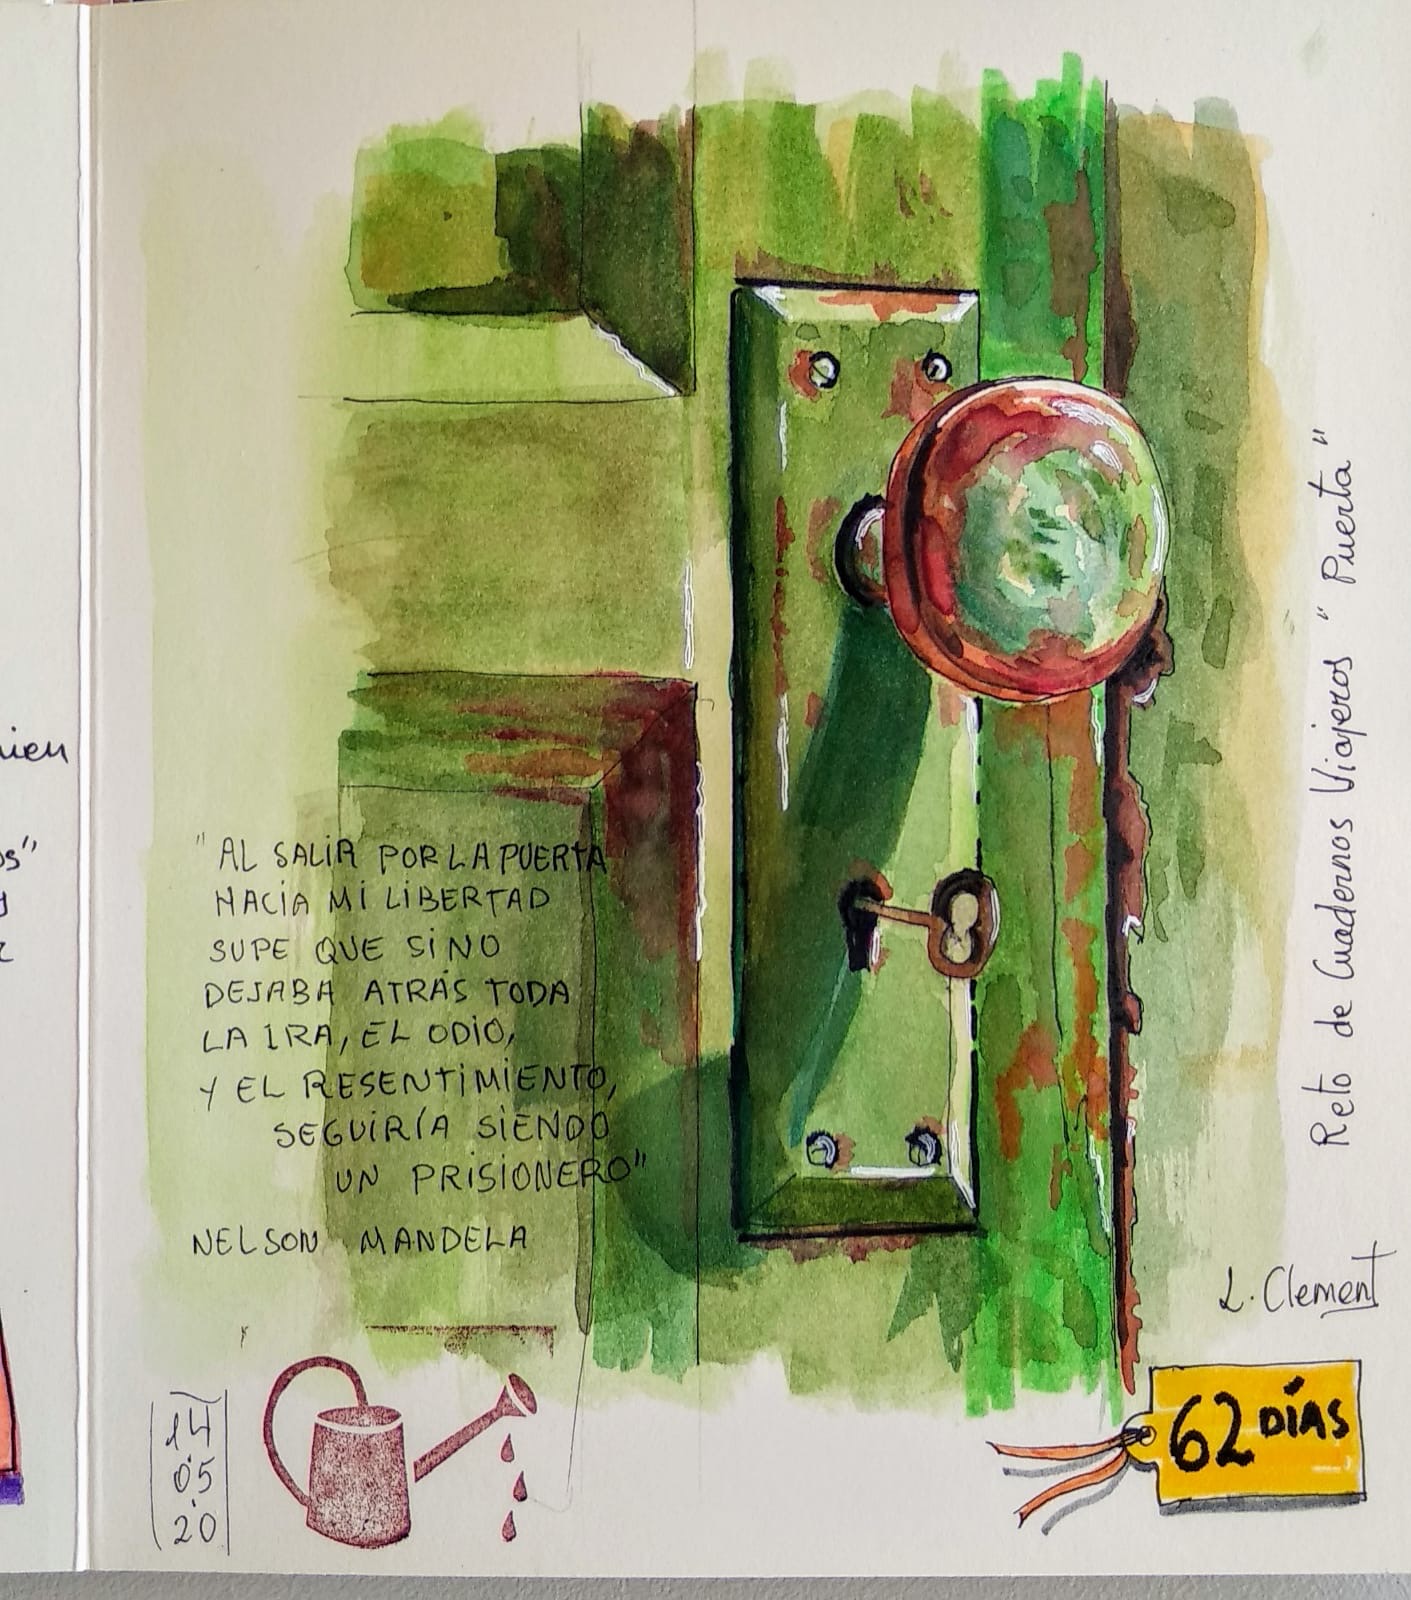 ien
os"
y
"AL SALIR POR LA PUERTA
HACIA MI LIBERTAD
SUPE QUE SI NO
DEJABA ATRÁS TODA
LA IRA, EL ODIO,
Y EL RESENTIMIENTO,
SEGUIRÍA SIENDO
UN PRISIONERO"
NELSON MANDELA
14
05
20
Reto de Cuadernos Viajeros "Puerta"
L. Clement
62 DÍAS